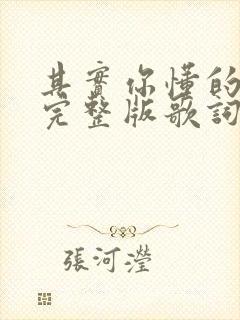 其實你懂的
完整版歌詞
張河瀅